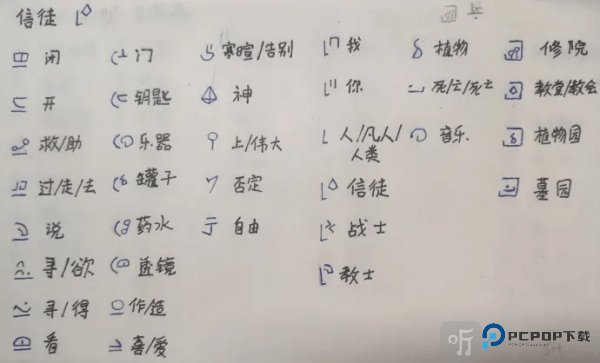 信徒
闭 门 寒暄/告别 我 植物 修院
开 钥匙 神 你 死/亡/死亡 教堂/教会
救/助 乐器 上/伟大 人/凡人/人类 音乐 植物园
过/走/去 罐子 否定 信徒 墓园
说 药水 自由 战士
寻/欲 透镜 教士
寻/得 作/造
看 喜/爱
听
PCPOP下载